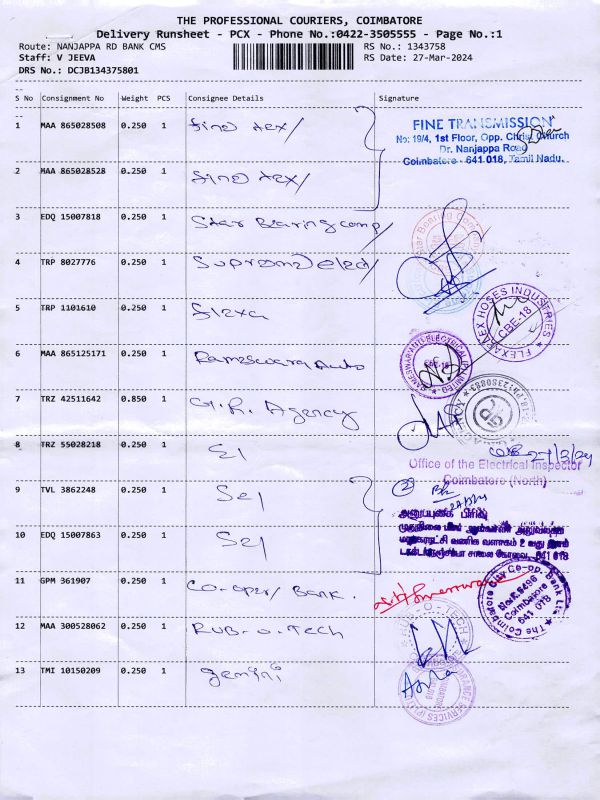 THE PROFESSIONAL COURIERS, COIMBATORE
Delivery Runsheet - PCX - Phone No.:0422-3505555 - Page No.:1
Route: NANJAPPA RD BANK CMS
RS No.: 1343758
Staff: V JEEVA
RS Date: 27-Mar-2024
DRS No.: DCJB134375801
S No Consignment No Weight PCS Consignee Details Signature
1 MAA 865028508 0.250 1 Fine tex/
FINE TRANSMISSION
No: 19/4, 1st Floor, Opp. Christ Church
Dr. Nanjappa Road
Coimbatore - 641 018, Tamil Nadu.
2 MAA 865028528 0.250 1 Fine tex/
3 EDQ 15007818 0.250 1 Star Bearing comp/
Star Bearing
4 TRP 8027776 0.250 1 Supreme eled/
5 TRP 1101610 0.250 1 Flexa
FLEXAFLEX HOSES INDUSTRIES
CBE-18
6 MAA 865125171 0.250 1 Rameswara Auto
ELECTRICAL
CBE-18
7 TRZ 42511642 0.850 1 G.R. Agency
8 TRZ 55028218 0.250 1 EI
27/3/24
Office of the Electrical Inspector
Coimbatore (North)
9 TVL 3862248 0.250 1 SeI
2
10 EDQ 15007863 0.250 1 SeI
641 018
11 GPM 361907 0.250 1 Co-oper/ Bank.
The Coimbatore City Co-op. Bank Ltd.
Coimbatore
641 018
12 MAA 300528062 0.250 1 Rub-o-Tech
RUB-O-TECH
13 TMI 10150209 0.250 1 gemini